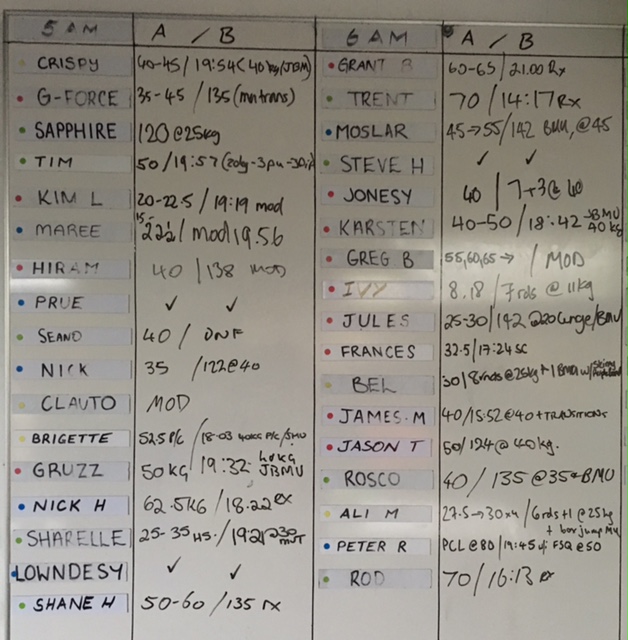 5 AM A / B
CRISPY 40-45 / 19:54 (40kg/JBM)
G-FORCE 35-45 / 135 (mntrans)
SAPPHIRE 120@25kg
TIM 50 / 19:57
KIM L 20-22.5 / 19:19 mod
MAREE 15- 22½ / mod 19.56
HIRAM 40 / 138 MOD
PRUE ✓ ✓
SEANO 40 / DNF
NICK 35 / 122@40
CLAUTO MOD
BRIGETTE 52.5 P/C / 18-03 40KG P/C/
GRUZZ 50KG / 19:32 40KG JBMU
NICK H 62.5KG / 18.22 RX
SHARELLE 25-35 HS. / 19:21 @30
LOWNDESY ✓ ✓
SHANE H 50-60 / 135 rx
6 AM A / B
GRANT B 60-65 / 21.00 Rx
TRENT 70 / 14:17 Rx
MOSLAR 45→55 / 142 BMU, @45
STEVE H ✓ ✓
JONESY 40 / 7+3@40
KARSTEN 40-50 / 18:42 JBMU 40kg
GREG B 55,60,65→ / MOD
IVY 8,18 / 7rds @ 11kg
JULES 25-30 / 142 @20 /BMU
FRANCES 32.5 / 17:24 SC
BEL 30 / 8rnds@25kg +1 BMU w/
JAMES.M 40 / 15:52@40+TRANSITIONS
JASON T 50 / 124@40kg.
ROSCO 40 / 135 @35 BMU
ALI M 27.5→30x4 / 6rds+1@25kg + bar jump MU
PETER R PCL@80 / 19:45 FSQ@50
ROD 70 / 16:13 Rx